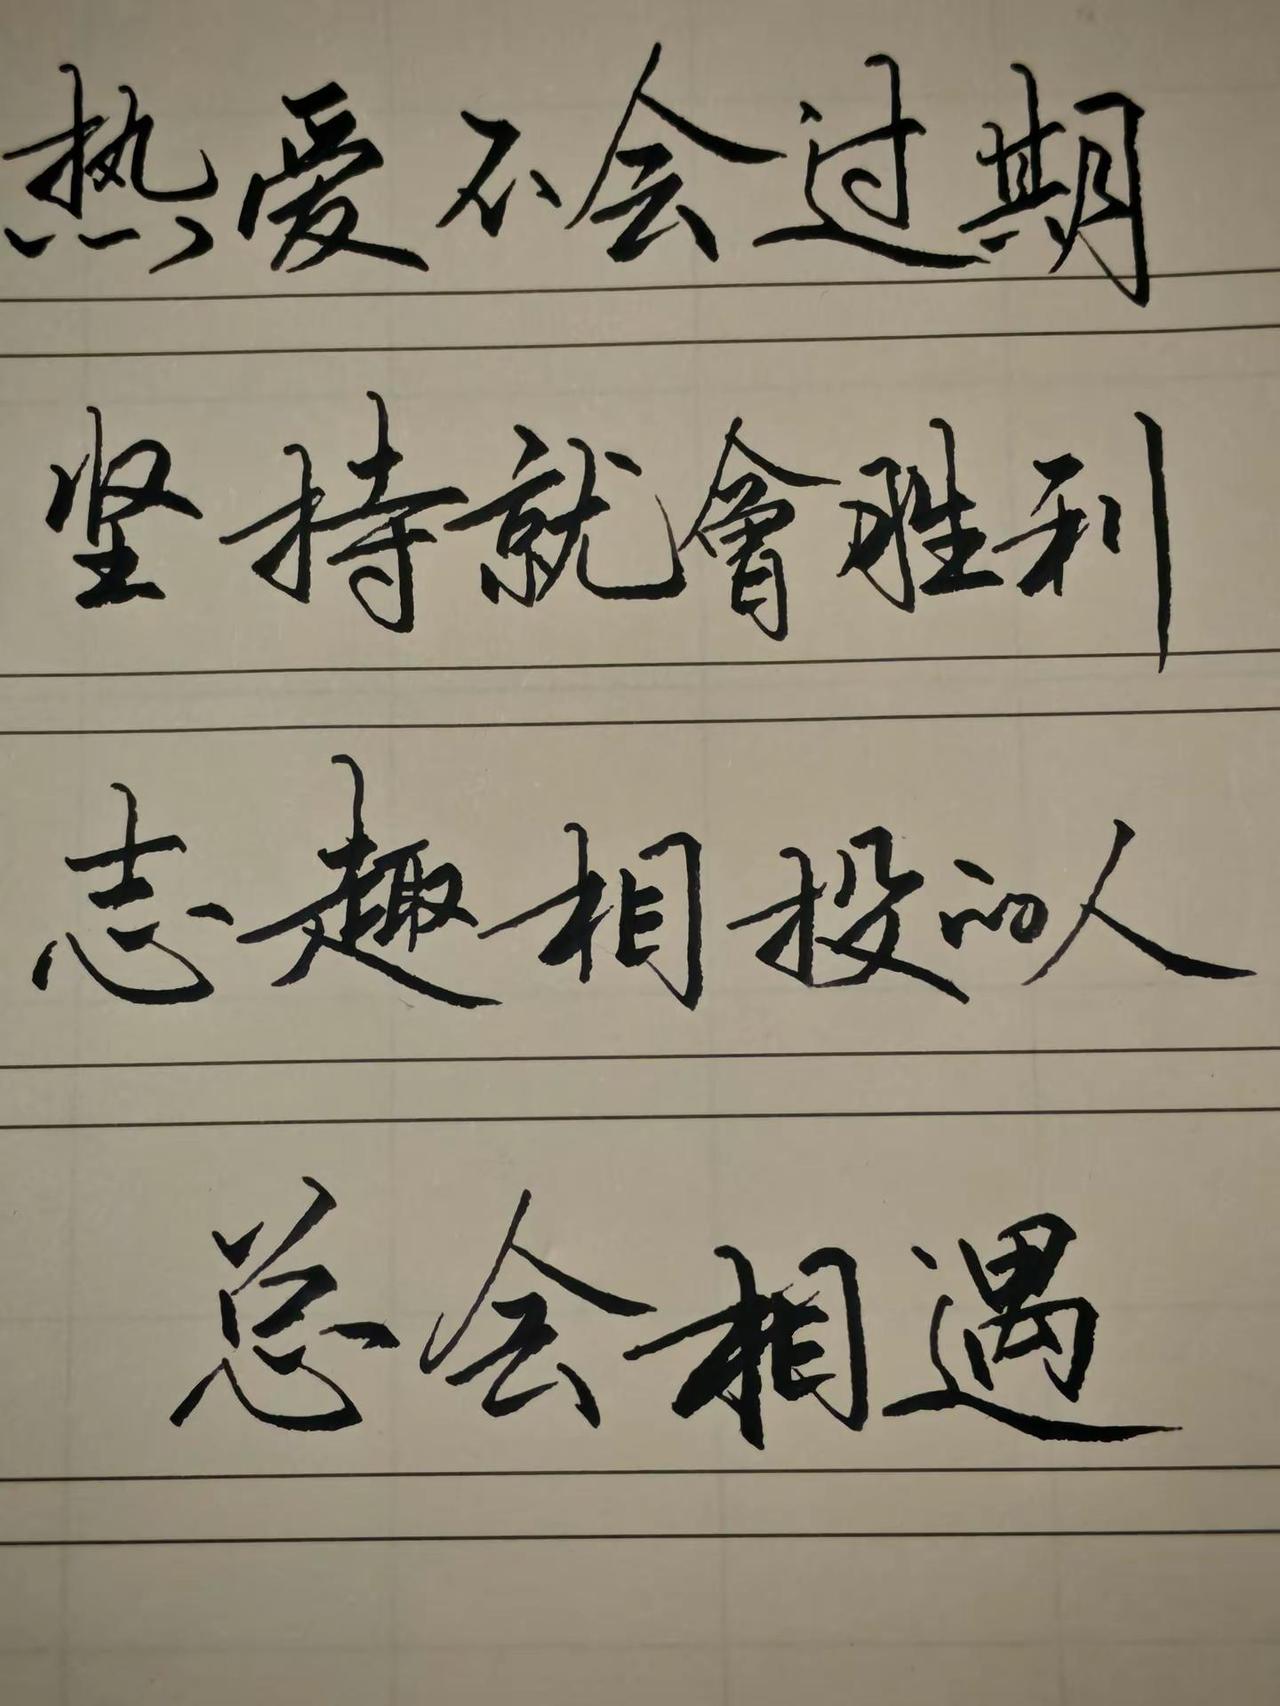 热爱不会过期
坚持就會胜利
志趣相投的人
总会相遇